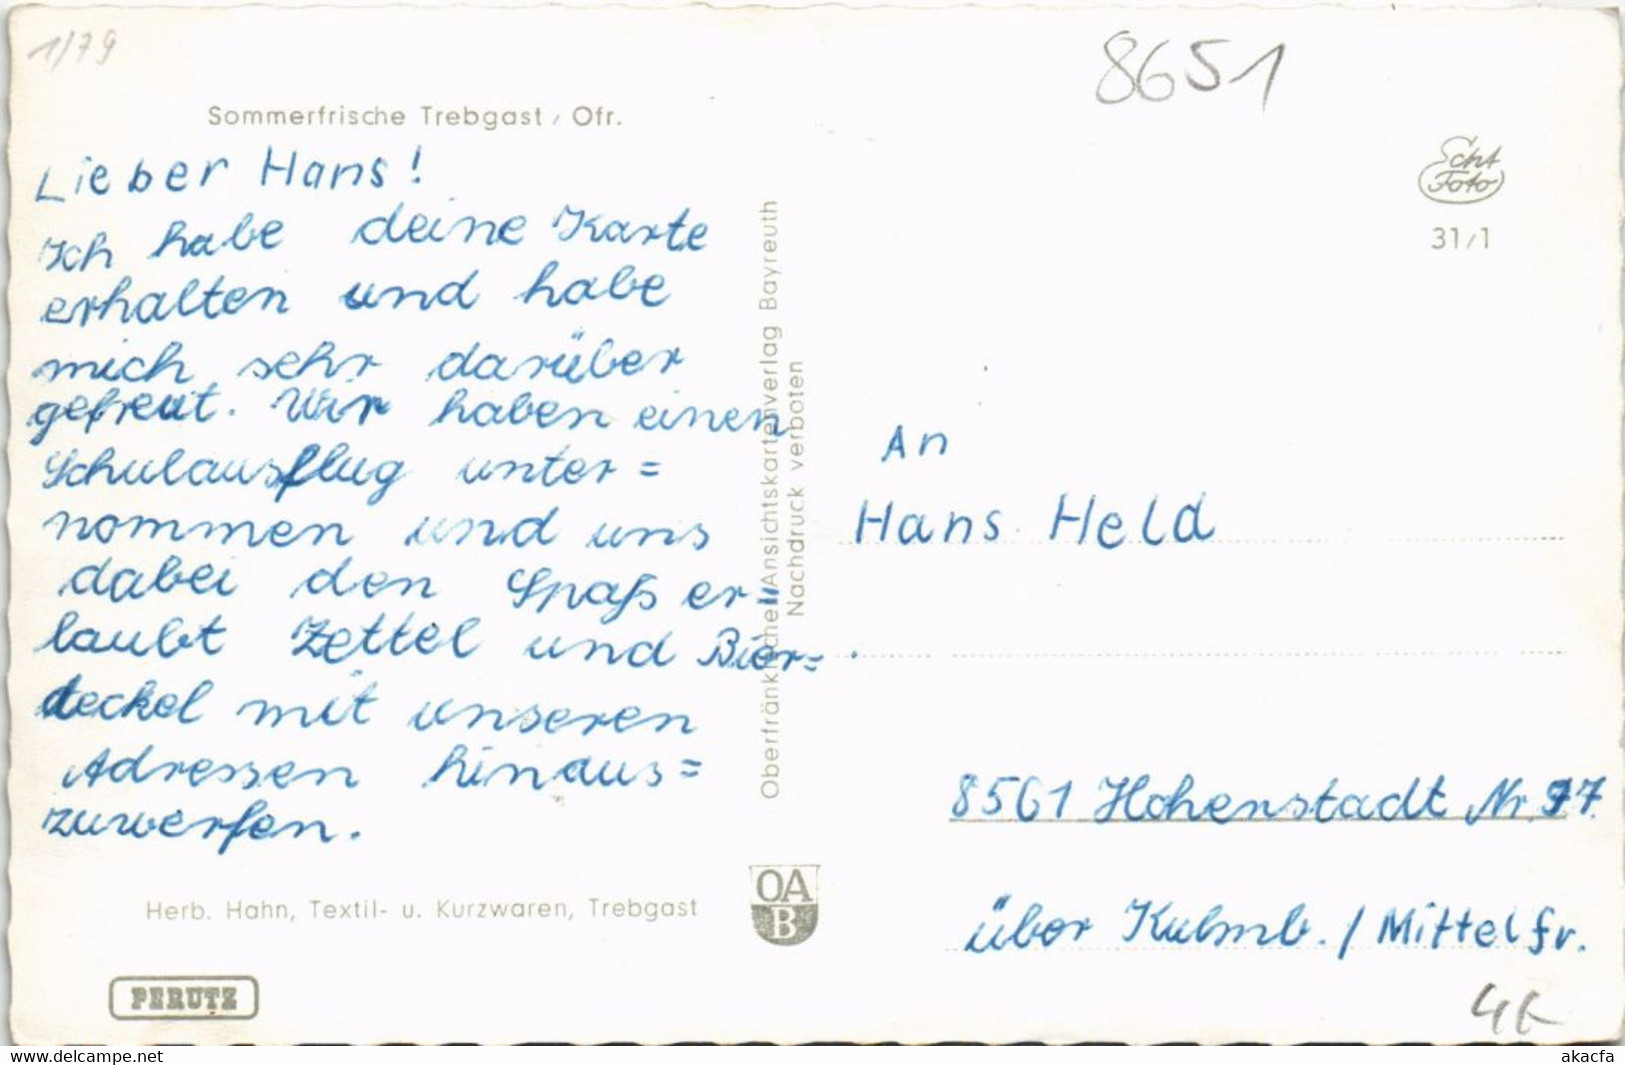 1/79
8651
Sommerfrische Trebgast / Ofr.
Lieber Hans!
Ich habe deine Karte
erhalten und habe
mich sehr darüber
gefreut. Wir haben einen
Schulausflug unter=
nommen und uns
dabei den Spaß er=
laubt Zettel und Bier=
deckel mit unseren
Adressen hinaus=
zuwerfen.
Herb. Hahn, Textil- u. Kurzwaren, Trebgast
PERUTZ
Oberfränkische Ansichtskartenverlag Bayreuth
Nachdruck verboten
OA
B
Echt
Foto
31/1
An
Hans Held
8561 Hohenstadt Nr. 97.
über Kulmb. / Mittelfr.
delcampe.net
akacfa